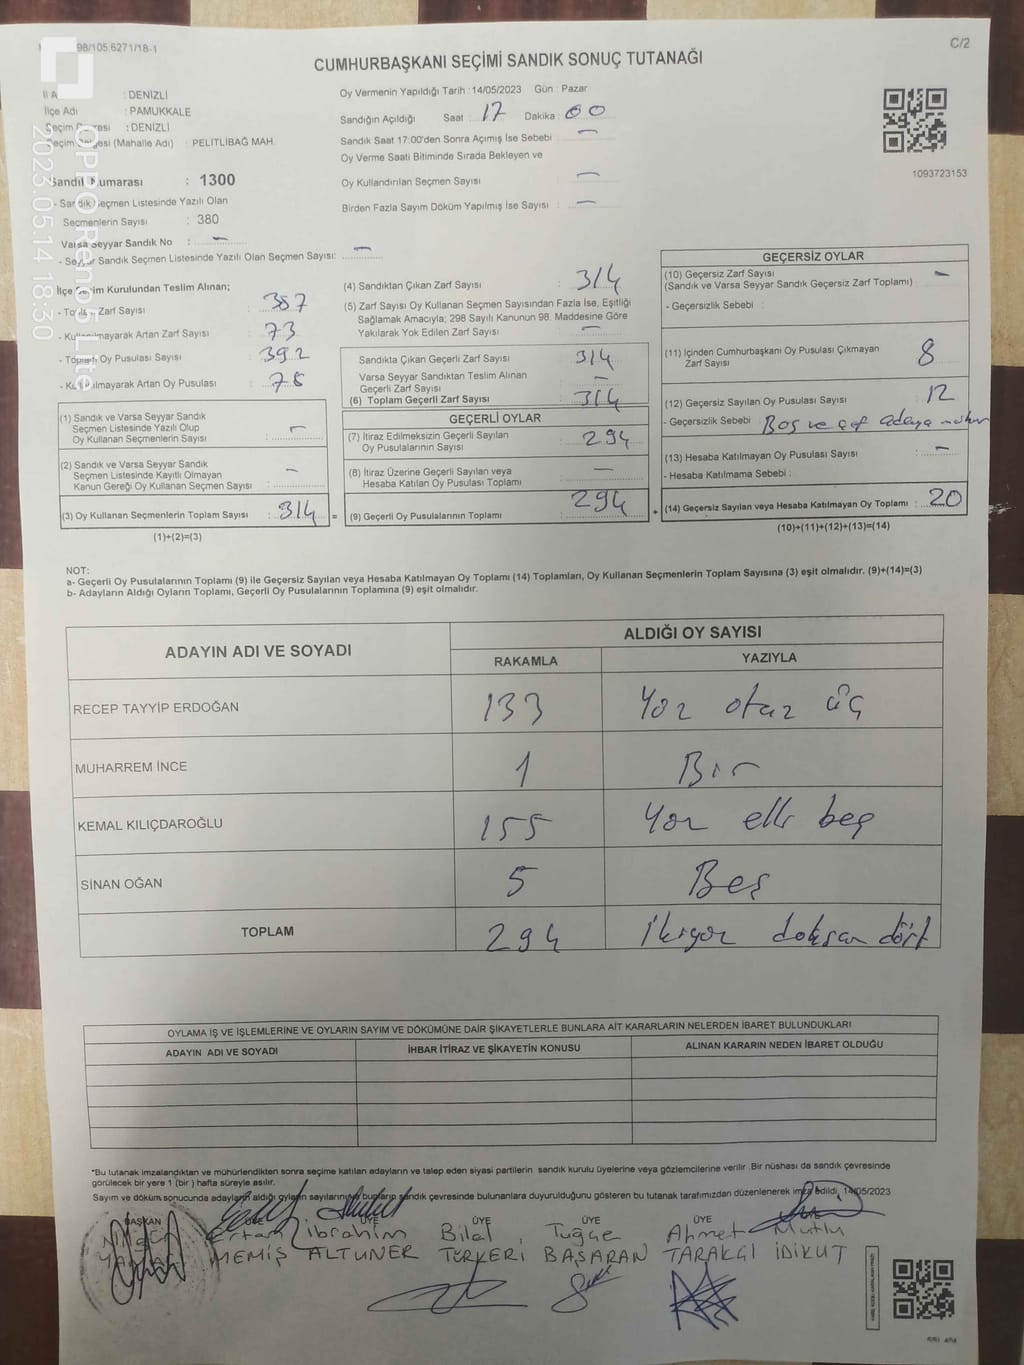 98/105.6271/18-1
C/2
CUMHURBAŞKANI SEÇİMİ SANDIK SONUÇ TUTANAĞI
İl A : DENİZLİ
İlçe Adı : PAMUKKALE
Seçim Çevresi : DENİZLİ
Seçim Bölgesi (Mahalle Adı) : PELİTLİBAĞ MAH.
Sandık Numarası : 1300
- Sandık Seçmen Listesinde Yazılı Olan
Seçmenlerin Sayısı : 380
Varsa Seyyar Sandık No : -
- Seyyar Sandık Seçmen Listesinde Yazılı Olan Seçmen Sayısı: -
Oy Vermenin Yapıldığı Tarih : 14/05/2023 Gün : Pazar
Sandığın Açıldığı Saat : 17 Dakika : 00
Sandık Saat 17:00'den Sonra Açımış İse Sebebi : -
Oy Verme Saati Bitiminde Sırada Bekleyen ve
Oy Kullandırılan Seçmen Sayısı : -
Birden Fazla Sayım Döküm Yapılmış İse Sayısı : -
1093723153
İlçe Seçim Kurulundan Teslim Alınan;
- Toplam Zarf Sayısı : 387
- Kullanılmayarak Artan Zarf Sayısı : 73
- Toplam Oy Pusulası Sayısı : 392
- Kullanılmayarak Artan Oy Pusulası : 78
(1) Sandık ve Varsa Seyyar Sandık
Seçmen Listesinde Yazılı Olup
Oy Kullanan Seçmenlerin Sayısı : -
(2) Sandık ve Varsa Seyyar Sandık
Seçmen Listesinde Kayıtlı Olmayan
Kanun Gereği Oy Kullanan Seçmen Sayısı : -
(3) Oy Kullanan Seçmenlerin Toplam Sayısı : 314 =
(1)+(2)=(3)
(4) Sandıktan Çıkan Zarf Sayısı : 314
(5) Zarf Sayısı Oy Kullanan Seçmen Sayısından Fazla İse, Eşitliği
Sağlamak Amacıyla; 298 Sayılı Kanunun 98. Maddesine Göre
Yakılarak Yok Edilen Zarf Sayısı : -
Sandıkta Çıkan Geçerli Zarf Sayısı : 314
Varsa Seyyar Sandıktan Teslim Alınan
Geçerli Zarf Sayısı : -
(6) Toplam Geçerli Zarf Sayısı : 314
GEÇERLİ OYLAR
(7) İtiraz Edilmeksizin Geçerli Sayılan
Oy Pusulalarının Sayısı : 294
(8) İtiraz Üzerine Geçerli Sayılan veya
Hesaba Katılan Oy Pusulası Toplamı : -
(9) Geçerli Oy Pusulalarının Toplamı : 294 +
GEÇERSİZ OYLAR
(10) Geçersiz Zarf Sayısı
(Sandık ve Varsa Seyyar Sandık Geçersiz Zarf Toplamı) : -
- Geçersizlik Sebebi :
(11) İçinden Cumhurbaşkanı Oy Pusulası Çıkmayan
Zarf Sayısı : 8
(12) Geçersiz Sayılan Oy Pusulası Sayısı : 12
- Geçersizlik Sebebi : Boş ve çift adaya mühür
(13) Hesaba Katılmayan Oy Pusulası Sayısı : -
- Hesaba Katılmama Sebebi :
(14) Geçersiz Sayılan veya Hesaba Katılmayan Oy Toplamı : 20
(10)+(11)+(12)+(13)=(14)
NOT:
a- Geçerli Oy Pusulalarının Toplamı (9) ile Geçersiz Sayılan veya Hesaba Katılmayan Oy Toplamı (14) Toplamları, Oy Kullanan Seçmenlerin Toplam Sayısına (3) eşit olmalıdır. (9)+(14)=(3)
b- Adayların Aldığı Oyların Toplamı, Geçerli Oy Pusulalarının Toplamına (9) eşit olmalıdır.
ADAYIN ADI VE SOYADI
ALDIĞI OY SAYISI
RAKAMLA YAZIYLA
RECEP TAYYİP ERDOĞAN 133 Yüz otuz üç
MUHARREM İNCE 1 Bir
KEMAL KILIÇDAROĞLU 155 Yüz elli beş
SİNAN OĞAN 5 Beş
TOPLAM 294 İkiyüz doksan dört
OYLAMA İŞ VE İŞLEMLERİNE VE OYLARIN SAYIM VE DÖKÜMÜNE DAİR ŞİKAYETLERLE BUNLARA AİT KARARLARIN NELERDEN İBARET BULUNDUKLARI
ADAYIN ADI VE SOYADI İHBAR İTİRAZ VE ŞİKAYETİN KONUSU ALINAN KARARIN NEDEN İBARET OLDUĞU
*Bu tutanak imzalandıktan ve mühürlendikten sonra seçime katılan adayların ve talep eden siyasi partilerin sandık kurulu üyelerine veya gözlemcilerine verilir .Bir nüshası da sandık çevresinde
görülecek bir yere 1 (bir ) hafta süreyle asılır.
Sayım ve döküm sonucunda adayların aldığı oyların sayılarının bunların sandık çevresinde bulunanlara duyurulduğunu gösteren bu tutanak tarafımızdan düzenlenerek imza edildi. 14/05/2023
BAŞKAN ÜYE ÜYE ÜYE ÜYE ÜYE
Ertan İbrahim Bilal Tuğçe Ahmet Mutlu
MEMİŞ ALTUNER TÜRKERİ BAŞARAN TARAKÇI İDİKUT
OPPO Reno5 Lite
2023.05.14 18:30